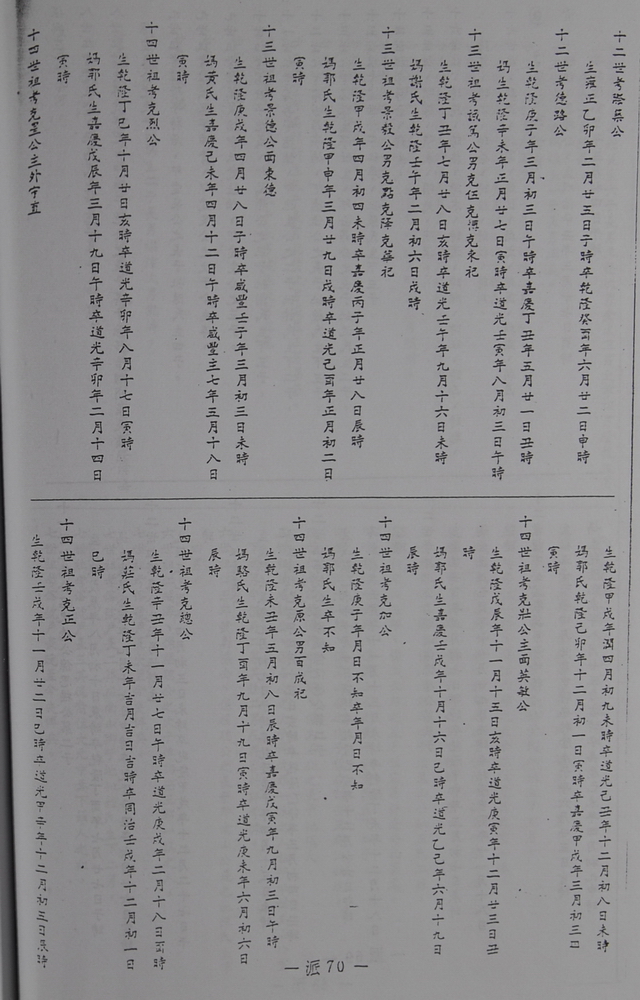 十二世考啓吳公
生雍正乙卯年二月廿三日子時卒乾隆癸酉年六月廿二日申時
十二世考德路公
生乾隆庚子年三月初三日午時卒嘉慶丁丑年五月廿一日丑時
媽生乾隆辛未年正月廿七日寅時卒道光壬寅年八月初三日午時
十三世祖考該萬公男克仨克澤克來祀
生乾隆丁丑年七月廿八日亥時卒道光壬午年九月十六日未時
媽謝氏生乾隆壬午年二月初六日戌時
十三世祖考景毅公男克點克澤克華祀
生乾隆甲戌年四月初四未時卒嘉慶丙子年正月廿八日辰時
媽郭氏生乾隆甲申年三月廿九日戌時卒道光己酉年正月初二日
寅時
十三世祖考景德公西東德
生乾隆庚戌年四月廿八日子時卒咸豐壬子年三月初三日未時
媽黃氏生嘉慶己未年四月十二日午時卒咸豐主七年三月十八日
寅時
十四世祖考克烈公
生乾隆丁巳年十月廿日亥時卒道光辛卯年八月十七日寅時
媽郭氏生嘉慶戊辰年三月十九日午時卒道光辛卯年二月十四日
十四世祖考克室公主外宇直
生乾隆甲戌年潤四月初九未時卒道光己丑年十二月初八日未時
媽郭氏生乾隆己卯年十二月初一日寅時卒嘉慶甲戌年三月初三日
寅時
十四世祖考克莊公主西英敏公
生乾隆戊辰年十一月十三日亥時卒道光庚寅年十二月廿三日丑
時
媽郭氏生嘉慶壬戌年十月十六日巳時卒道光乙己年六月十九日
辰時
十四世祖考克加公
生乾隆庚子年月日不知卒年月日不知
媽郭氏生卒不知
十四世祖考克原公男百成祀
生乾隆未丑年三月初八日辰時卒嘉慶戊寅年九月初三日午時
媽駱氏生乾隆丁酉年九月十九日寅時卒道光庚未年六月初六日
辰時
十四世祖考克總公
生乾隆辛丑年十一月廿七日午時卒道光庚戌年二月十八日酉時
媽莊氏生乾隆丁未年吉月吉日吉時卒同治壬戌年十二月初一日
巳時
十四世祖考克正公
生乾隆壬戌年十一月廿二日巳時卒道光甲辛年十二月初三日辰時
— 派 70 —